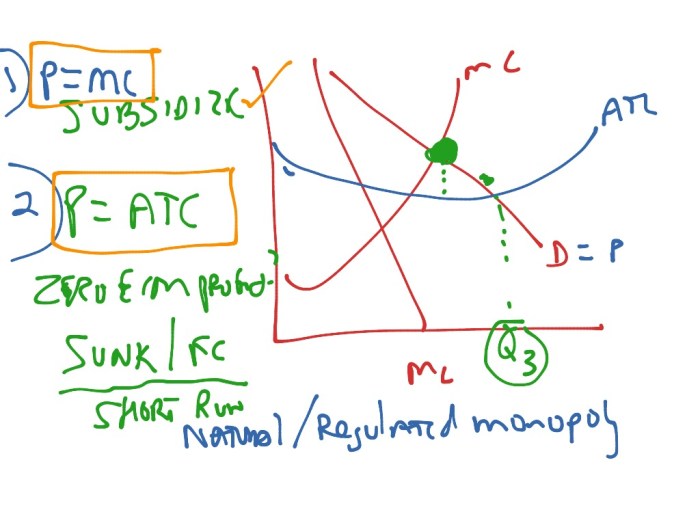 1) P=MC
SUBSIDIZE ✓
2) P= ATC
ZERO Econ profit
SUNK / FC
SHORT RUN
MC
ATC
D = P
Q3
MC
Natural / Regulated monopoly